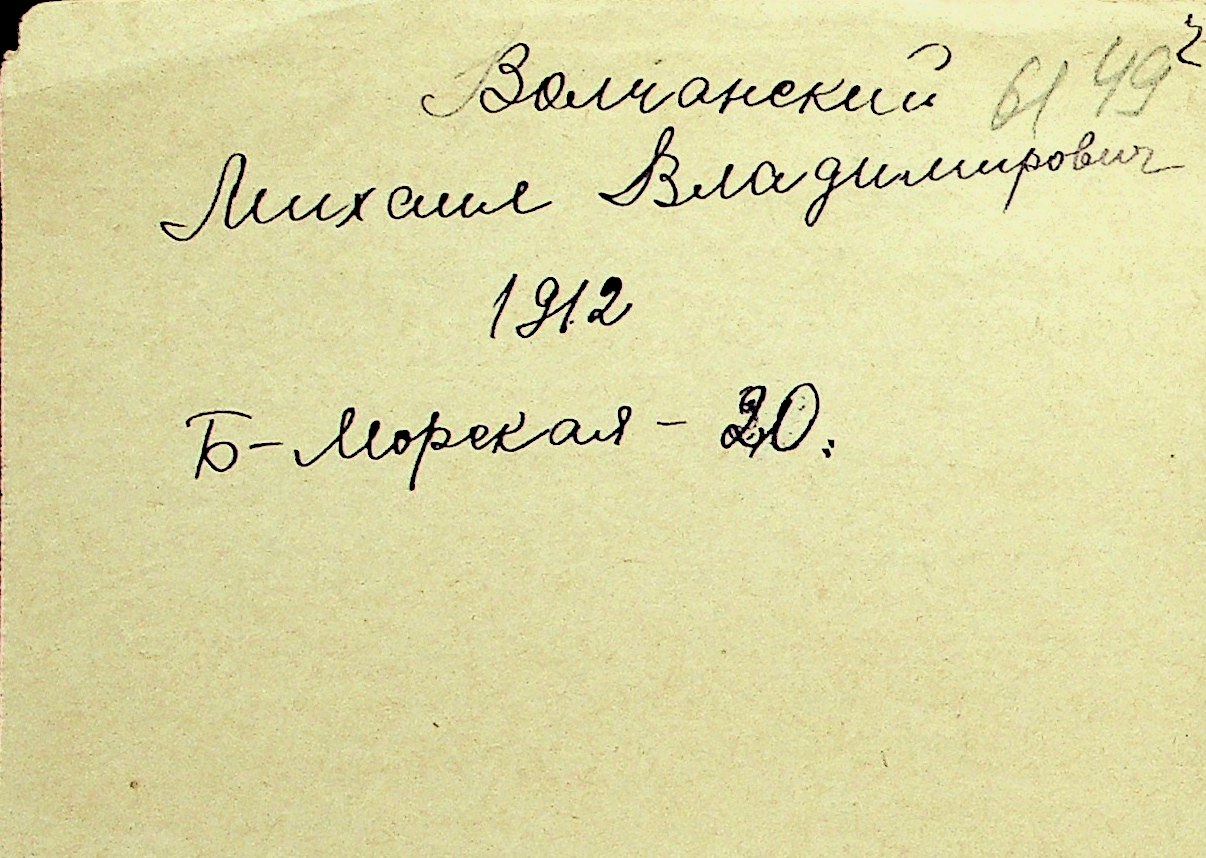 Волчанский 6149
Михаил Владимирович
1912
Б-Морская - 20.